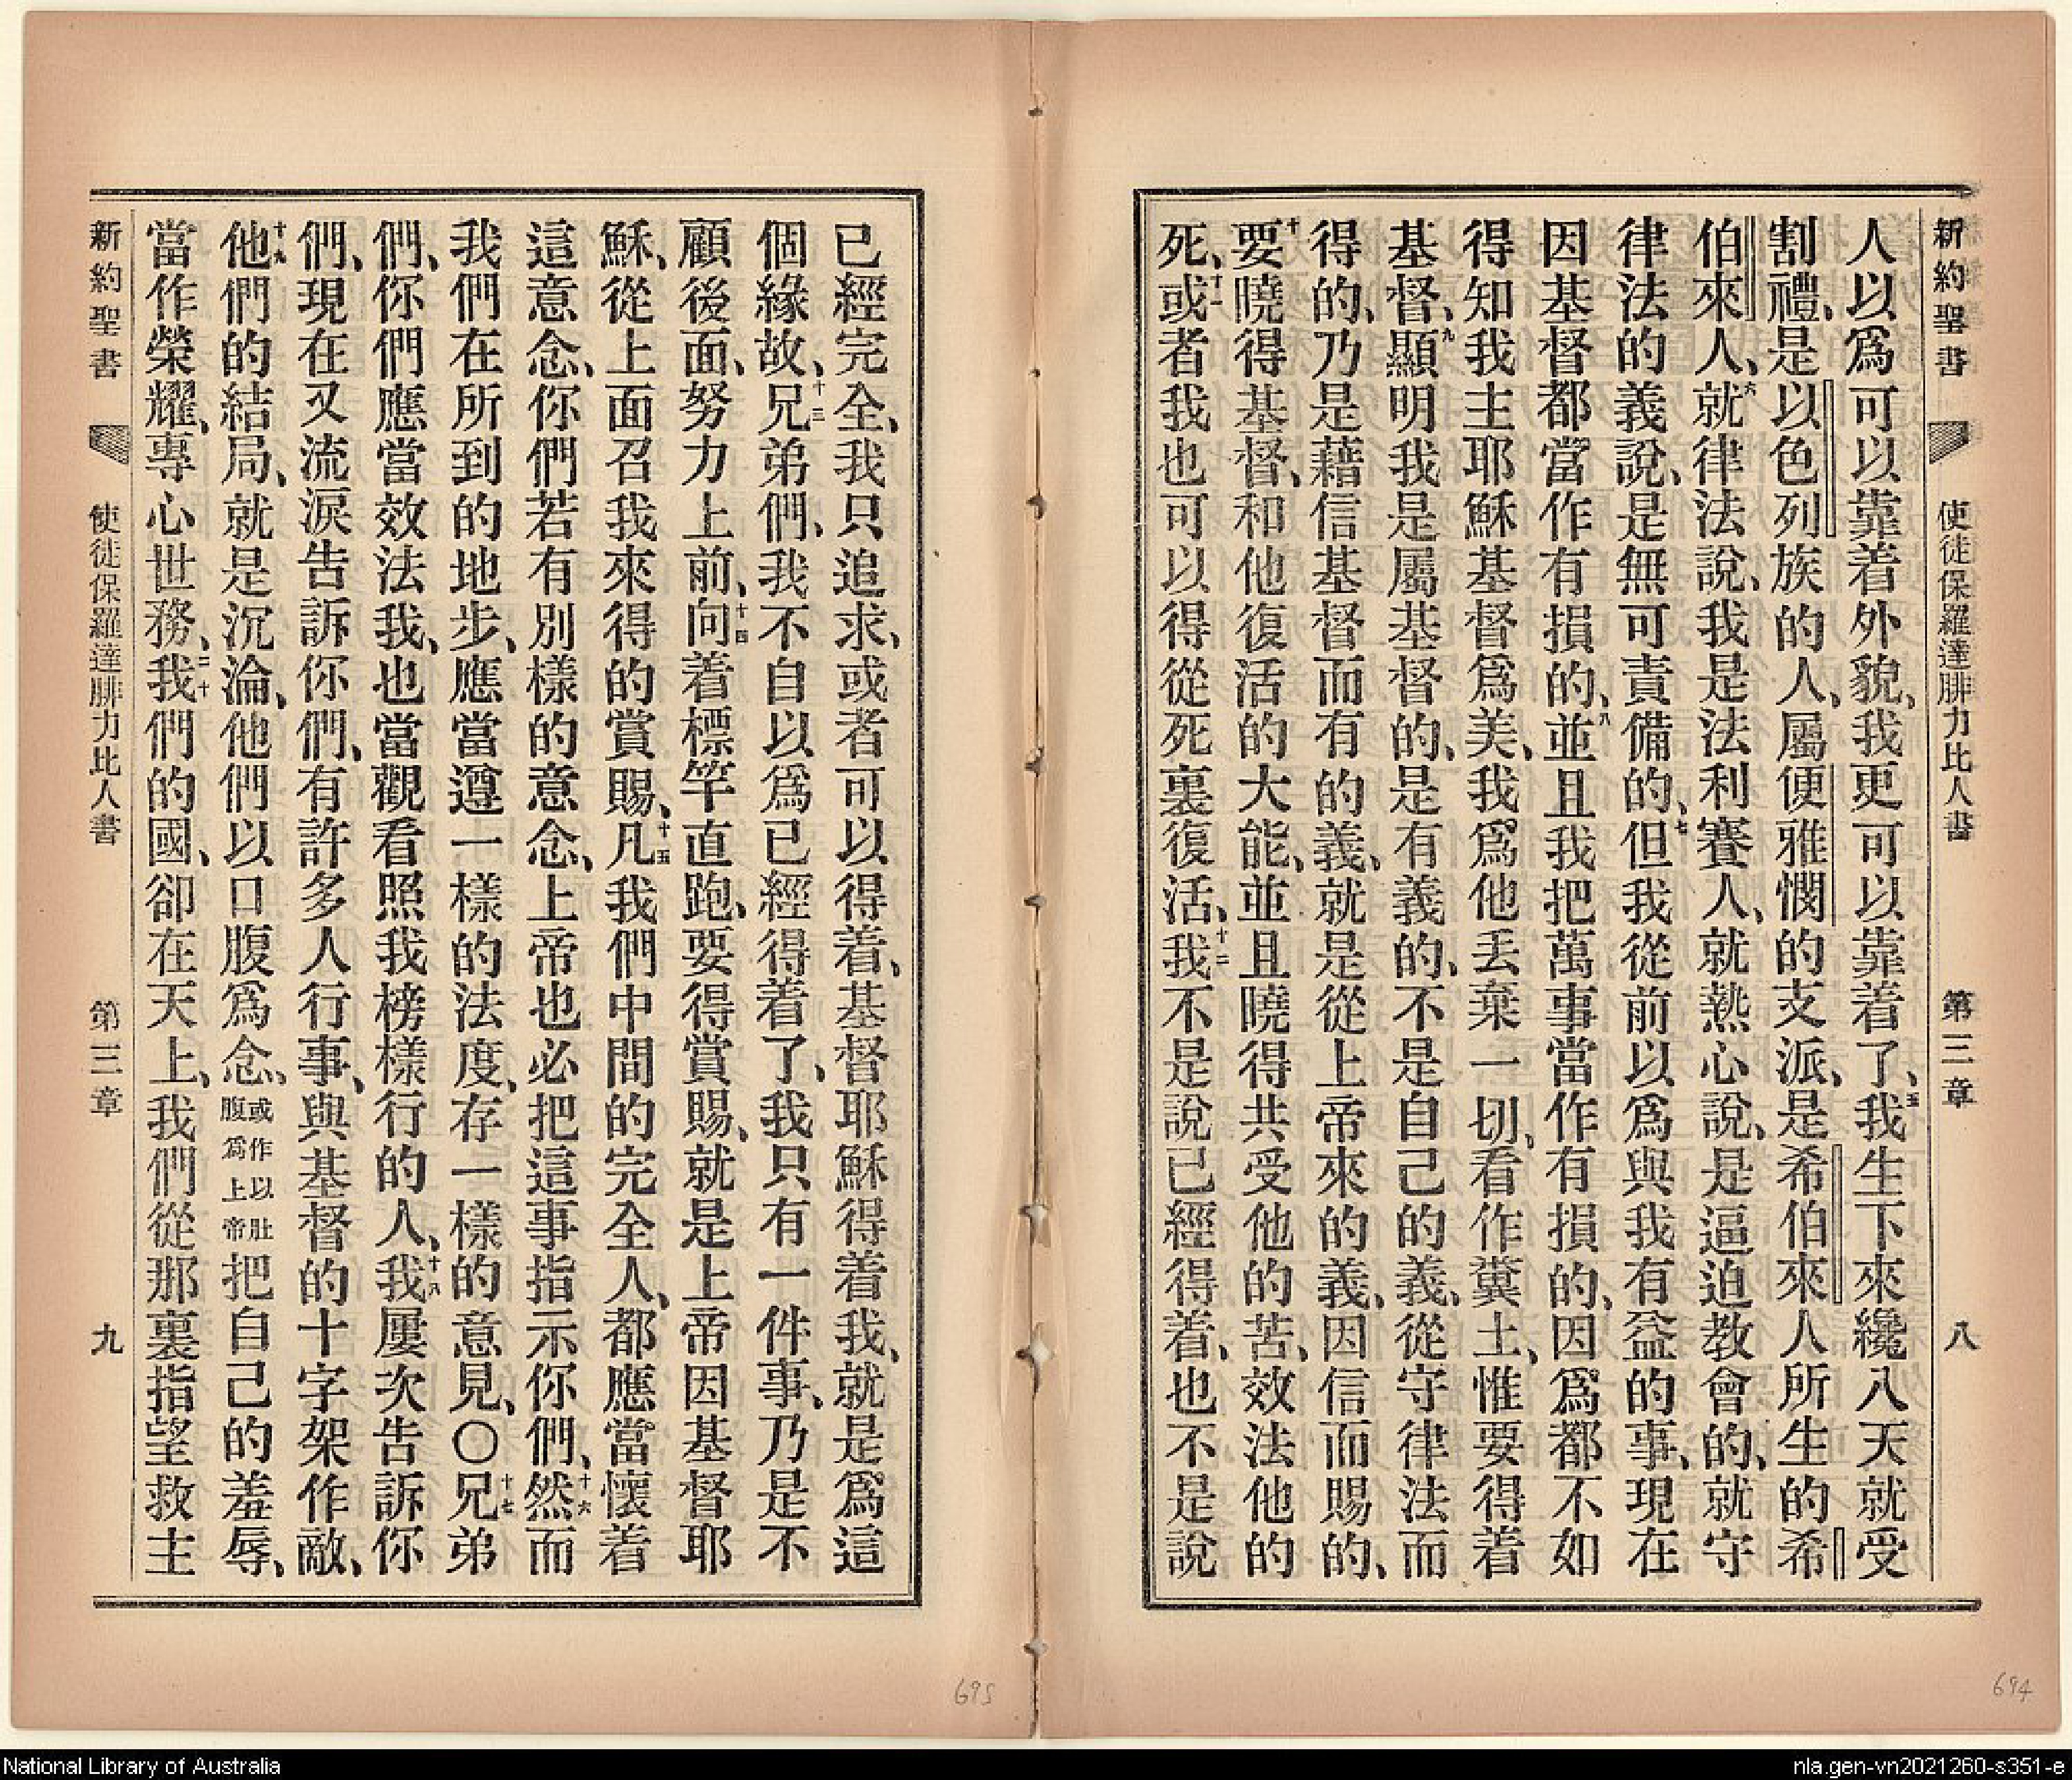 新約聖書 使徒保羅達腓力比人書 第三章 八
人以爲可以靠着外貌、我更可以靠着了、五我生下來纔八天就受
割禮、是以色列族的人、屬便雅憫的支派、是希伯來人所生的希
伯來人、六就律法說、我是法利賽人、就熱心說、是逼迫教會的、就守
律法的義說、是無可責備的、七但我從前以爲與我有益的事、現在
因基督都當作有損的、八並且我把萬事當作有損的、因爲都不如
得知我主耶穌基督爲美、我爲他丟棄一切、看作糞土、惟要得着
基督、九顯明我是屬基督的、是有義的、不是自己的義、從守律法而
得的、乃是藉信基督而有的義、就是從上帝來的義、因信而賜的、
十要曉得基督、和他復活的大能、並且曉得共受他的苦、效法他的
死、十一或者我也可以得從死裏復活、十二我不是說已經得着、也不是說
已經完全、我只追求、或者可以得着、基督耶穌得着我、就是爲這
個緣故、十三兄弟們、我不自以爲已經得着了、我只有一件事、乃是不
顧後面、努力上前、十四向着標竿直跑、要得賞賜、就是上帝因基督耶
穌、從上面召我來得的賞賜、十五凡我們中間的完全人、都應當懷着
這意念、你們若有別樣的意念、上帝也必把這事指示你們、十六然而
我們在所到的地步、應當遵一樣的法度、存一樣的意見、〇十七兄弟
們、你們應當效法我、也當觀看照我榜樣行的人、十八我屢次告訴你
們、現在又流淚告訴你們、有許多人行事、與基督的十字架作敵、
十九他們的結局、就是沉淪、他們以口腹爲念、或作以肚腹爲上帝把自己的羞辱、
當作榮耀、專心世務、二十我們的國、卻在天上、我們從那裏指望救主
新約聖書 使徒保羅達腓力比人書 第三章 九
695
694
National Library of Australia
nla.gen-vn2021260-s351-e